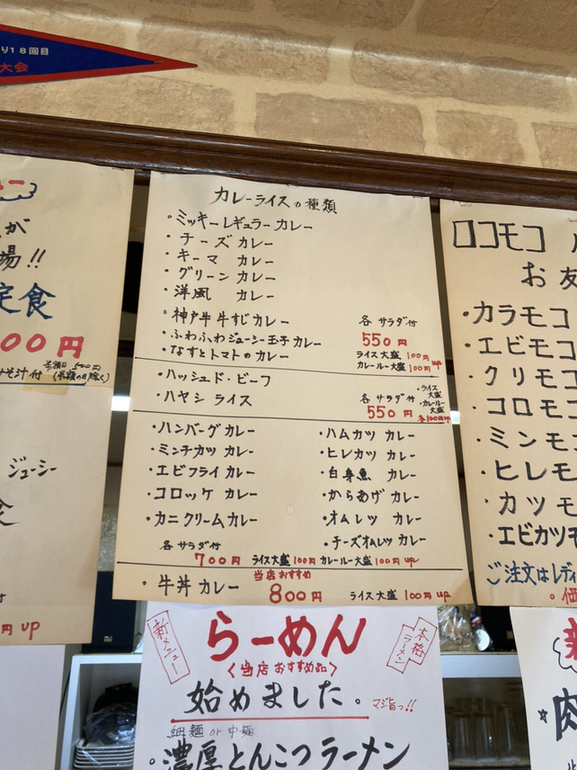 り18回目
大会
が
場!!
定食
00円
ジューシー
円 UP
カレーライスの種類
・ミッキーレギュラーカレー
・チーズカレー
・キーマ カレー
・グリーンカレー
・洋風 カレー
・神戸牛牛すじカレー
・ふわふわジューシー玉子カレー
・なすとトマトのカレー
各サラダ付
550円
ライス大盛100円UP
カレールー大盛100円UP
・ハッシュド・ビーフ
・ハヤシライス
各サラダ付
550円
・ライス大盛
・カレールー大盛
各100円UP
・ハンバーグカレー
・ミンチカツカレー
・エビフライカレー
・コロッケカレー
・カニクリームカレー
・ハムカツカレー
・ヒレカツカレー
・白身魚 カレー
・からあげカレー
・オムレツカレー
・チーズオムレツカレー
各サラダ付
700円 ライス大盛100円カレールー大盛100円UP
当店おすすめ
・牛丼カレー 800円 ライス大盛100円UP
新メニュー
らーめん
本格ラーメン
<当店おすすめ品>
始めました。
マジ旨っ!!
細麺or中麺
・濃厚とんこつラーメン
ロコモコ
お友
・カラモコ
・エビモコ
・クリモコ
・コロモコ
・ミンモコ
・ヒレモコ
・カツモコ
・エビカツモ
ご注文はレディ